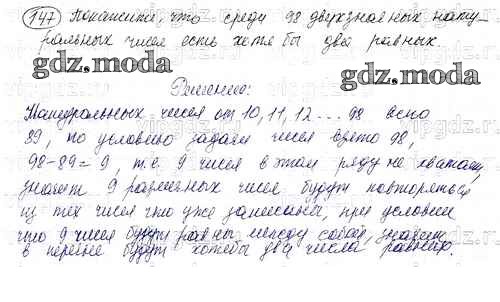 147 Покажите, что среди 98 двухзначных нату-
ральных чисел есть хотя бы два равных.
gdz.moda
gdz.moda
Решение:
Натуральных чисел от 10, 11, 12 ... 98 всего
89, по условию задачи чисел 98,
98-89=9, т.е. 9 чисел в этом ряду не хватает,
значит 9 различных чисел будут повторяться
из тех чисел что уже записаны, при условии
что 9 чисел будут равны между собой, значит
в перечне будут хотябы два числа равных.